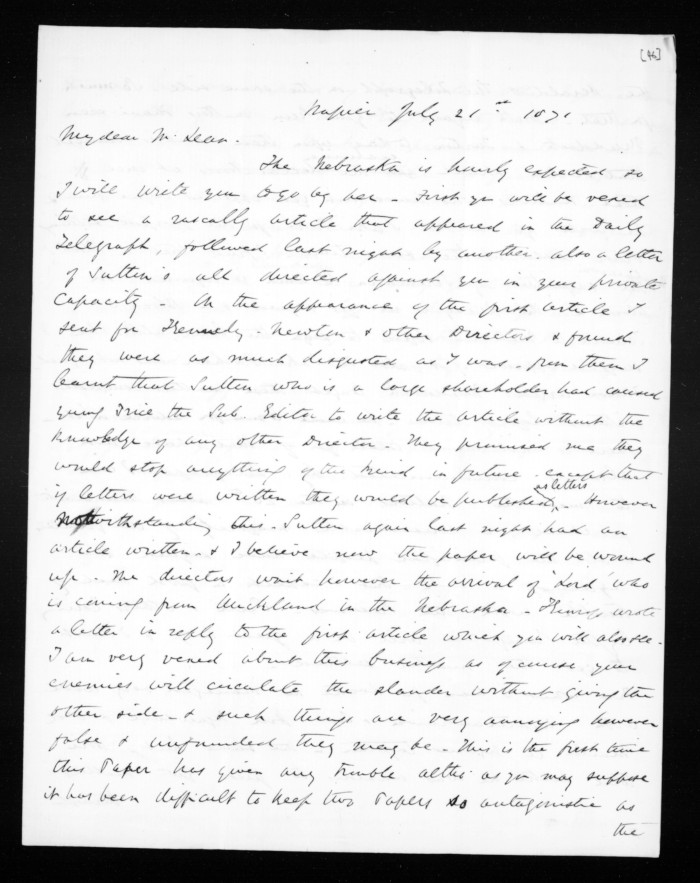 [46]
Napier July 21st 1871
My dear McLean.
The Nebraska is hourly expected so
I will write you to go by her - First you will be vexed
to see a rascally article that appeared in the Daily
Telegraph, followed last night by another. also a letter
of Sutton's all directed against you in your private
Capacity - On the appearance of the first article I
sent for Kennedy - Newton & other Directors & found
they were as much disgusted as I was - from them I
learnt that Sutton who is a large shareholder had caused
young Price the Sub. Editor to write the article without the
knowledge of any other Director - They promised me they
would stop anything of the kind in future - except that
if letters were written they would be published as letters - However
Notwithstanding this - Sutton again last night had an
article written - & I believe now the paper will be wound
up - The directors wait however the arrival of 'Lord' who
is coming from Auckland in the Nebraska - wrote
a letter in reply to the first article which you will also see -
I am very vexed about this business as of course your
enemies will circulate the slander without giving the
other side - & such things are very annoying however
false & unfounded they may be - This is the first time
this Paper has given any trouble altho' as you may suppose
it has been difficult to keep two Papers so antagonistic as
the